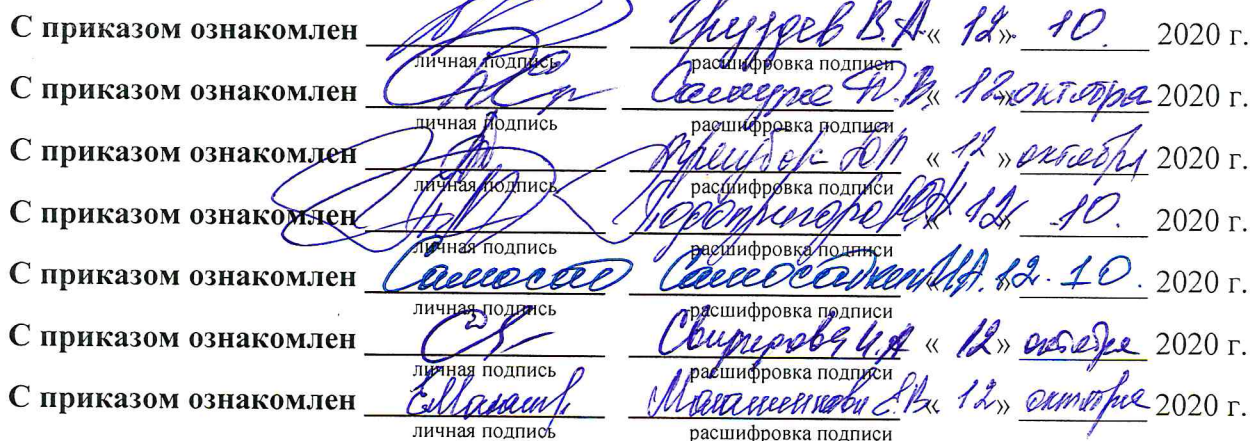 С приказом ознакомлен Груздев В.А. « 12 » 10. 2020 г.
личная подпись расшифровка подписи
С приказом ознакомлен Д.В. « 12 » октября 2020 г.
личная подпись расшифровка подписи
С приказом ознакомлен « 12 » октября 2020 г.
личная подпись расшифровка подписи
С приказом ознакомлен « 12 » 10. 2020 г.
личная подпись расшифровка подписи
С приказом ознакомлен « 12 » . 10. 2020 г.
личная подпись расшифровка подписи
С приказом ознакомлен Свиридова И.А « 12 » октября 2020 г.
личная подпись расшифровка подписи
С приказом ознакомлен Е.В. « 12 » октября 2020 г.
личная подпись расшифровка подписи